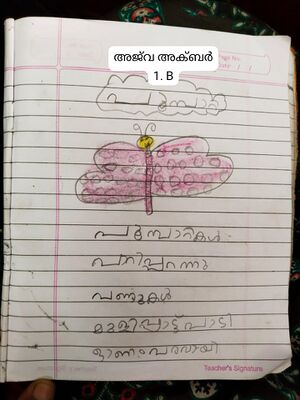 Page No:
Date: / /
അജ്‌വ അക്ബർ
1. B
പൂമ്പാറ്റ
പൂമ്പാറ്റകൾ
പാറിപ്പറന്നു
വണ്ടുകൾ
മൂളിപ്പാട്ട് പാടി
ഓണം വരവായി
Teacher's Signature